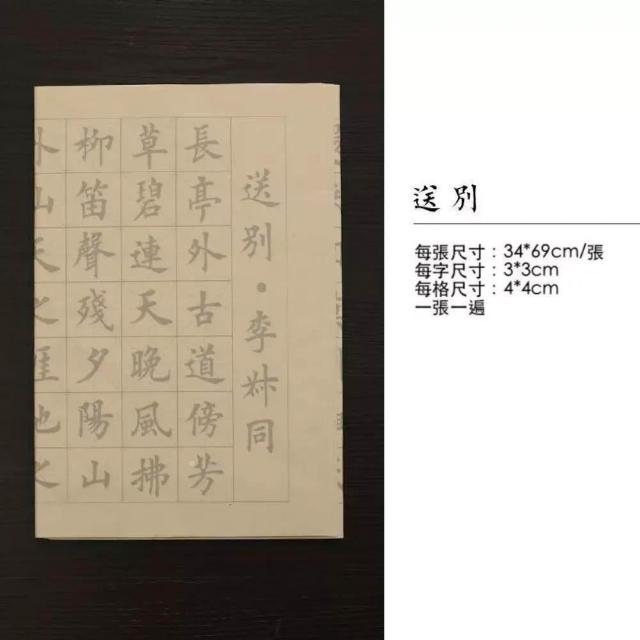 送別・李叔同
長亭外古道傍芳
草碧連天晚風拂
柳笛聲殘夕陽山
外山天之涯地之
送別
每張尺寸：34*69cm/張
每字尺寸：3*3cm
每格尺寸：4*4cm
一張一遍